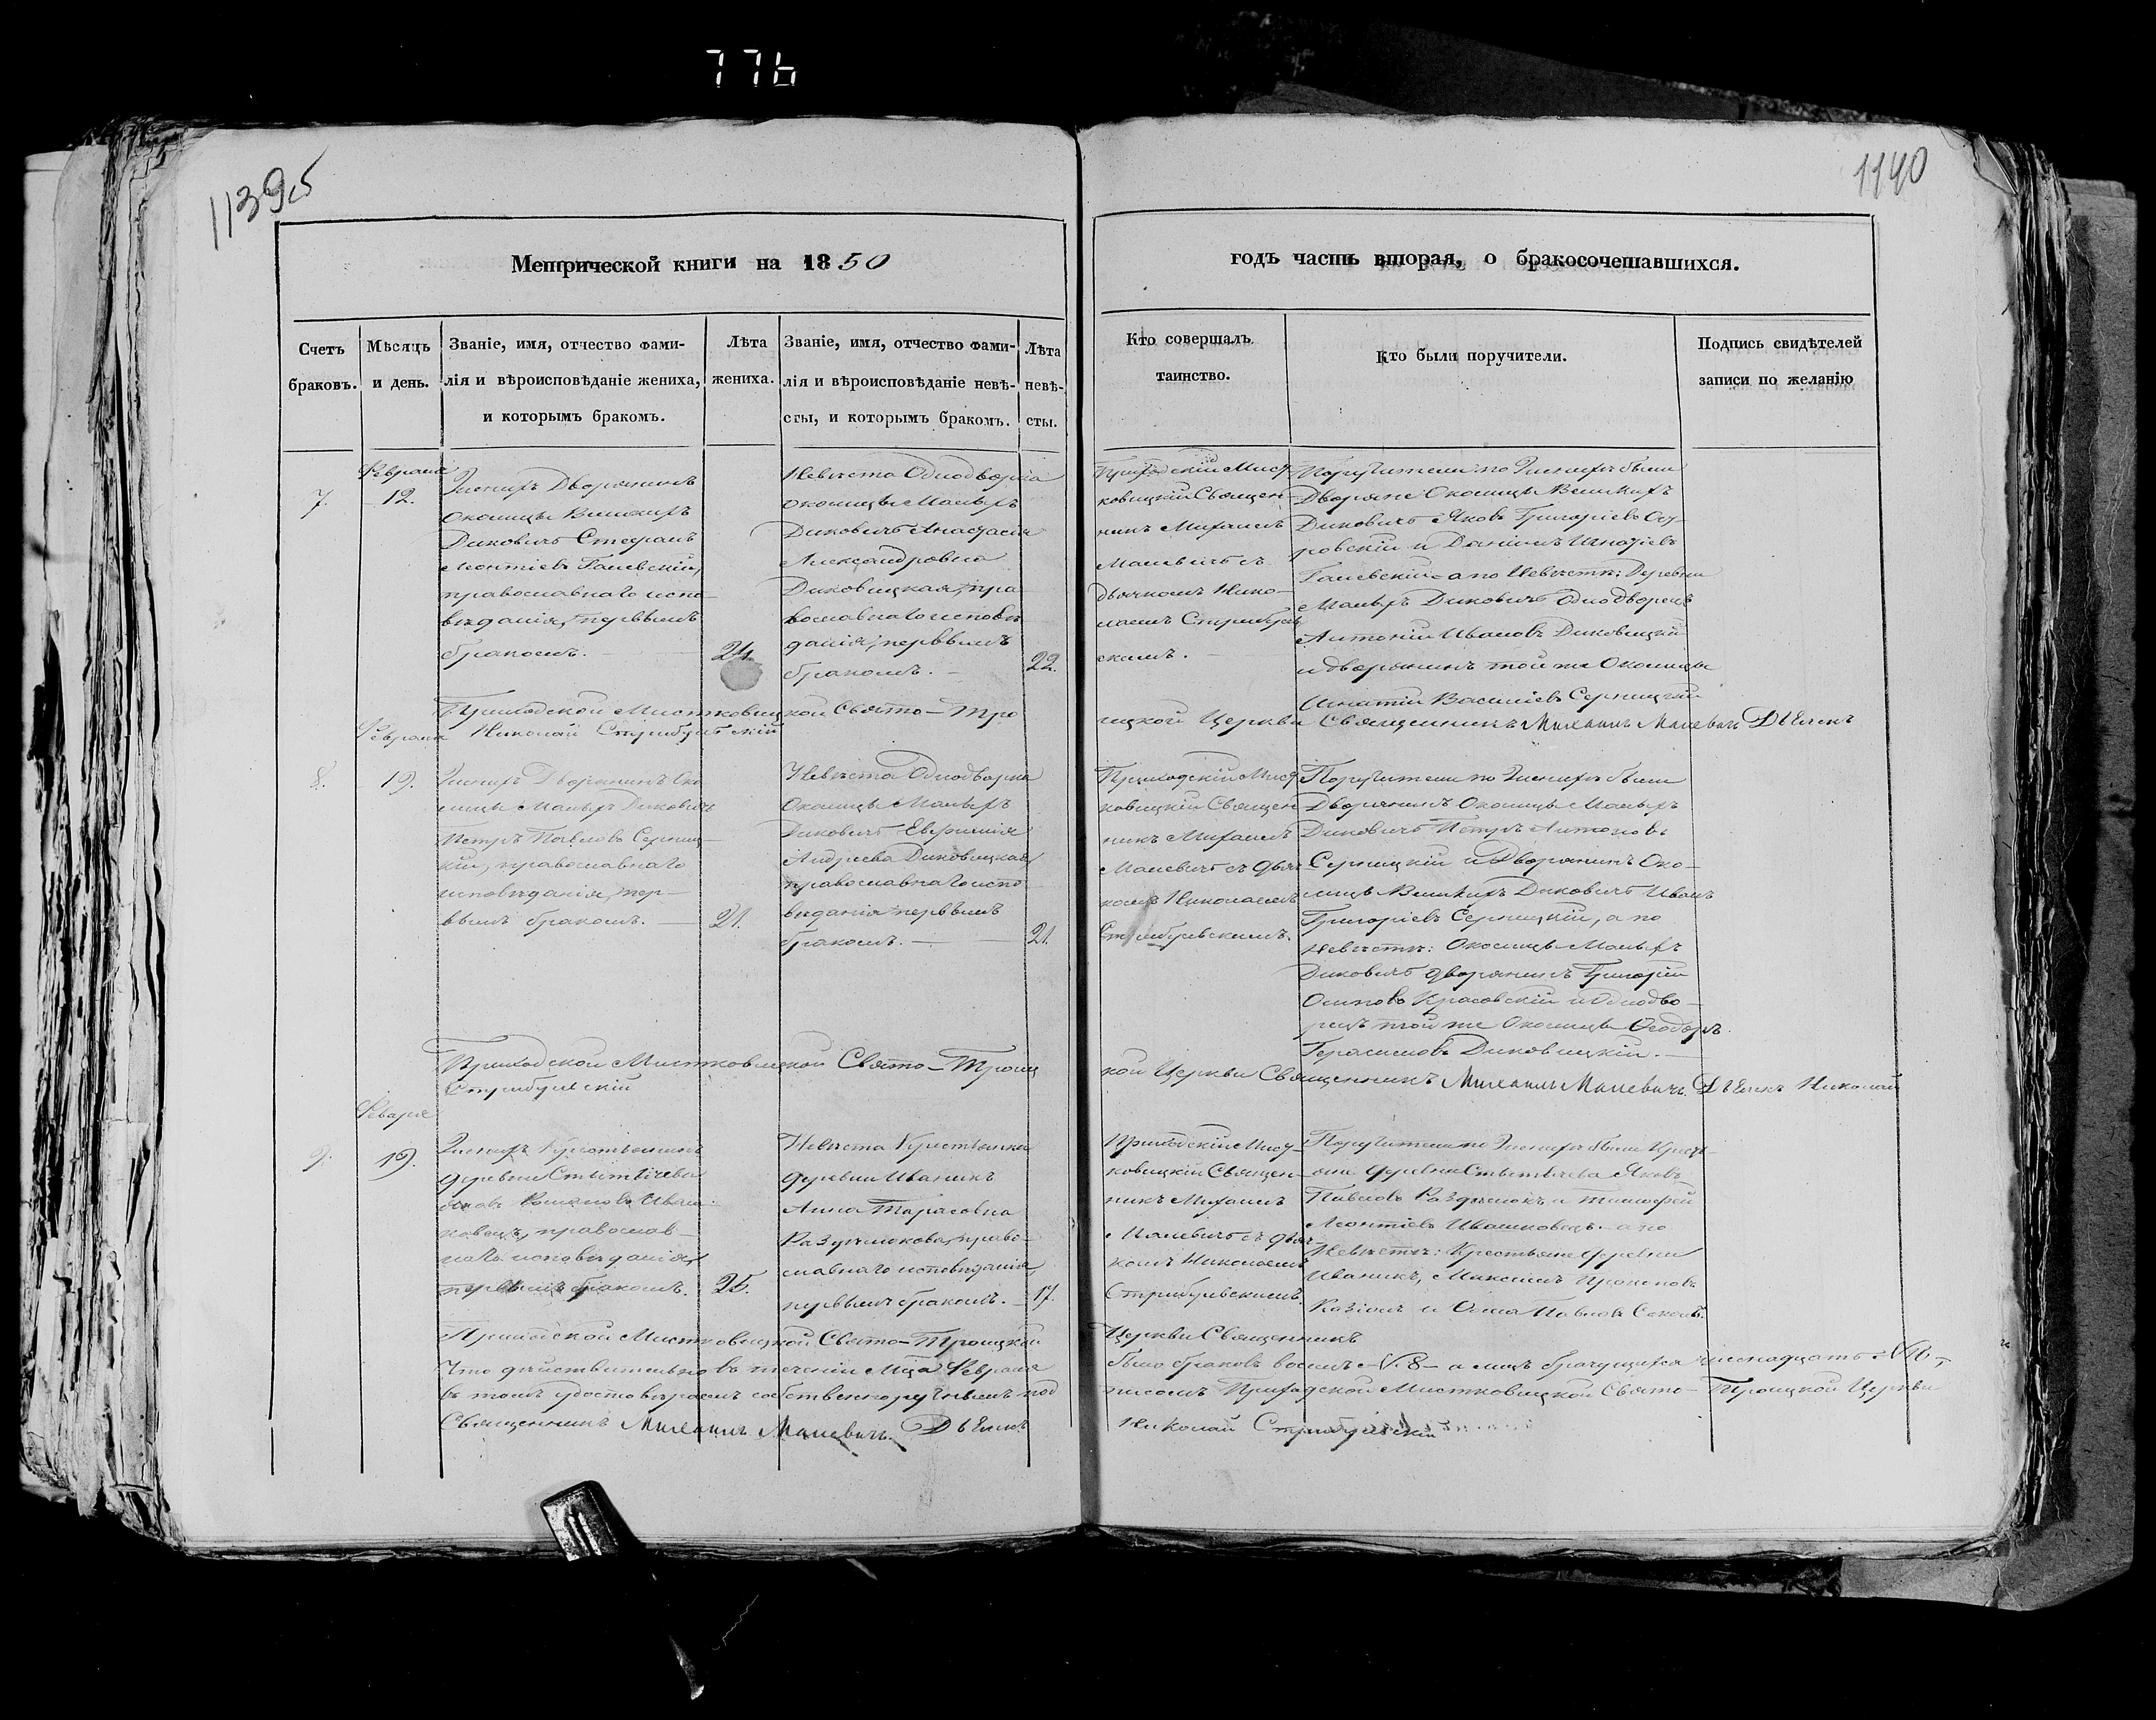 776
1139 об
1140
Метрической книги на 1850
годъ часть вторая, о бракосочетавшихся.
Счетъ
браковъ.
Мѣсяцъ
и день.
Званіе, имя, отчество фами-
лія и вѣроисповѣданіе жениха,
и которымъ бракомъ.
Лѣта
жениха.
Званіе, имя, отчество фами-
лія и вѣроисповѣданіе невѣ-
сты, и которымъ бракомъ.
Лѣта
невѣ-
сты.
Кто совершалъ
таинство.
Кто были поручители.
Подпись свидѣтелей
записи по желанію
7.
Февраля
12.
Женихъ Дворянинъ
Околицы Великихъ
Диковичъ Стефанъ
Леонтіевъ Галевскій,
православнаго испо-
вѣданія, первымъ
бракомъ.
24.
Невѣста Однодворка
околицы Малыхъ
Диковичъ Анастасія
Александровна
Диковицкая, пра
вославнаго исповѣ
данія, первымъ
бракомъ.
22.
Приходскій Мист-
ковицкій Священ-
никъ Михаилъ
Малевичъ съ
дьячкомъ Нико-
лаемъ Стрибулев
скимъ.
Поручители по Женихѣ были
Дворяне Околицы Великихъ
Диковичъ Яковъ Григоріевъ
ровскій и Даніилъ Игнатіевъ
Галевскій а по Невѣстѣ: Деревни
Малыхъ Диковичъ Однодворецъ
Антоній Ивановъ Диковицкій
и дворянинъ той же Околицы
Игнатій Василіевъ Серницкій
Приходской Мистковицкой Свято-Тро
ицкой Церкви Священникъ Михаилъ Малевичъ Дьячекъ
Николай Стрибулевскій
8.
Февраля
19.
Женихъ Дворянинъ Око
лицы Малыхъ Диковичъ
Петръ Павловъ Серниц-
кій, православнаго
исповѣданія, пер-
вымъ бракомъ.
21.
Невѣста Однодворка
Околицы Малыхъ
Диковичъ Евфимія
Андреева Диковицкая
православнаго испо-
вѣданія первымъ
бракомъ.
21.
Приходскій Мист
ковицкій Священ
никъ Михаилъ
Малевичъ съ дьяч-
комъ Николаемъ
Стрибулевскимъ.
Поручители по Женихѣ были
Дворянинъ Околицы Малыхъ
Диковичъ Петръ Антоновъ
Серницкій и Дворянинъ Око-
лицы Великихъ Диковичъ Иванъ
Григоріевъ Серницкій, а по
невѣстѣ: Околицы Малыхъ
Диковичъ дворянинъ Григорій
Осиповъ Красовскій и Однодво-
рецъ той же Околицы Ѳеодоръ
Герасимовъ Диковицкій.
Приходской Мистковицкой Свято-Троиц
кой Церкви Священникъ Михаилъ Малевичъ. Дьячекъ Николай
Стрибулевскій
9.
Февраля
19.
Женихъ Крестьянинъ
деревни Стытычева
Романовъ Иваш
ковецъ, православ-
наго исповѣданія,
первымъ бракомъ.
25.
Невѣста Крестьянка
деревни Иваникъ
Анна Тарасовна
православ-
славнаго исповѣданія,
первымъ бракомъ.
17.
Приходскій Мист-
ковицкій Священ-
никъ Михаилъ
Малевичъ съ дьяч-
комъ Николаемъ
Стрибулевскимъ.
Поручители по Женихѣ были Крест-
яне деревни Стытычева Яковъ
Павловъ и Тимофей
Леонтіевъ Ивашковецъ а по
Невѣстѣ: Крестьяне деревни
Иваникъ, Максимъ Прокоповъ
и Ѳома Павловъ
Приходской Мистковицкой Свято-Троицкой
Церкви Священникъ
Что дѣйствительно въ теченіи Мца Февраля
было браковъ восемь №8 а лицъ брачущихся шеснадцать №16,
въ томъ удостовѣряемъ собственноручнымъ под
писомъ Приходской Мистковицкой Свято-Троицкой Церкви
Священникъ Михаилъ Малевичъ. Дьячекъ
Николай Стрибулевскій